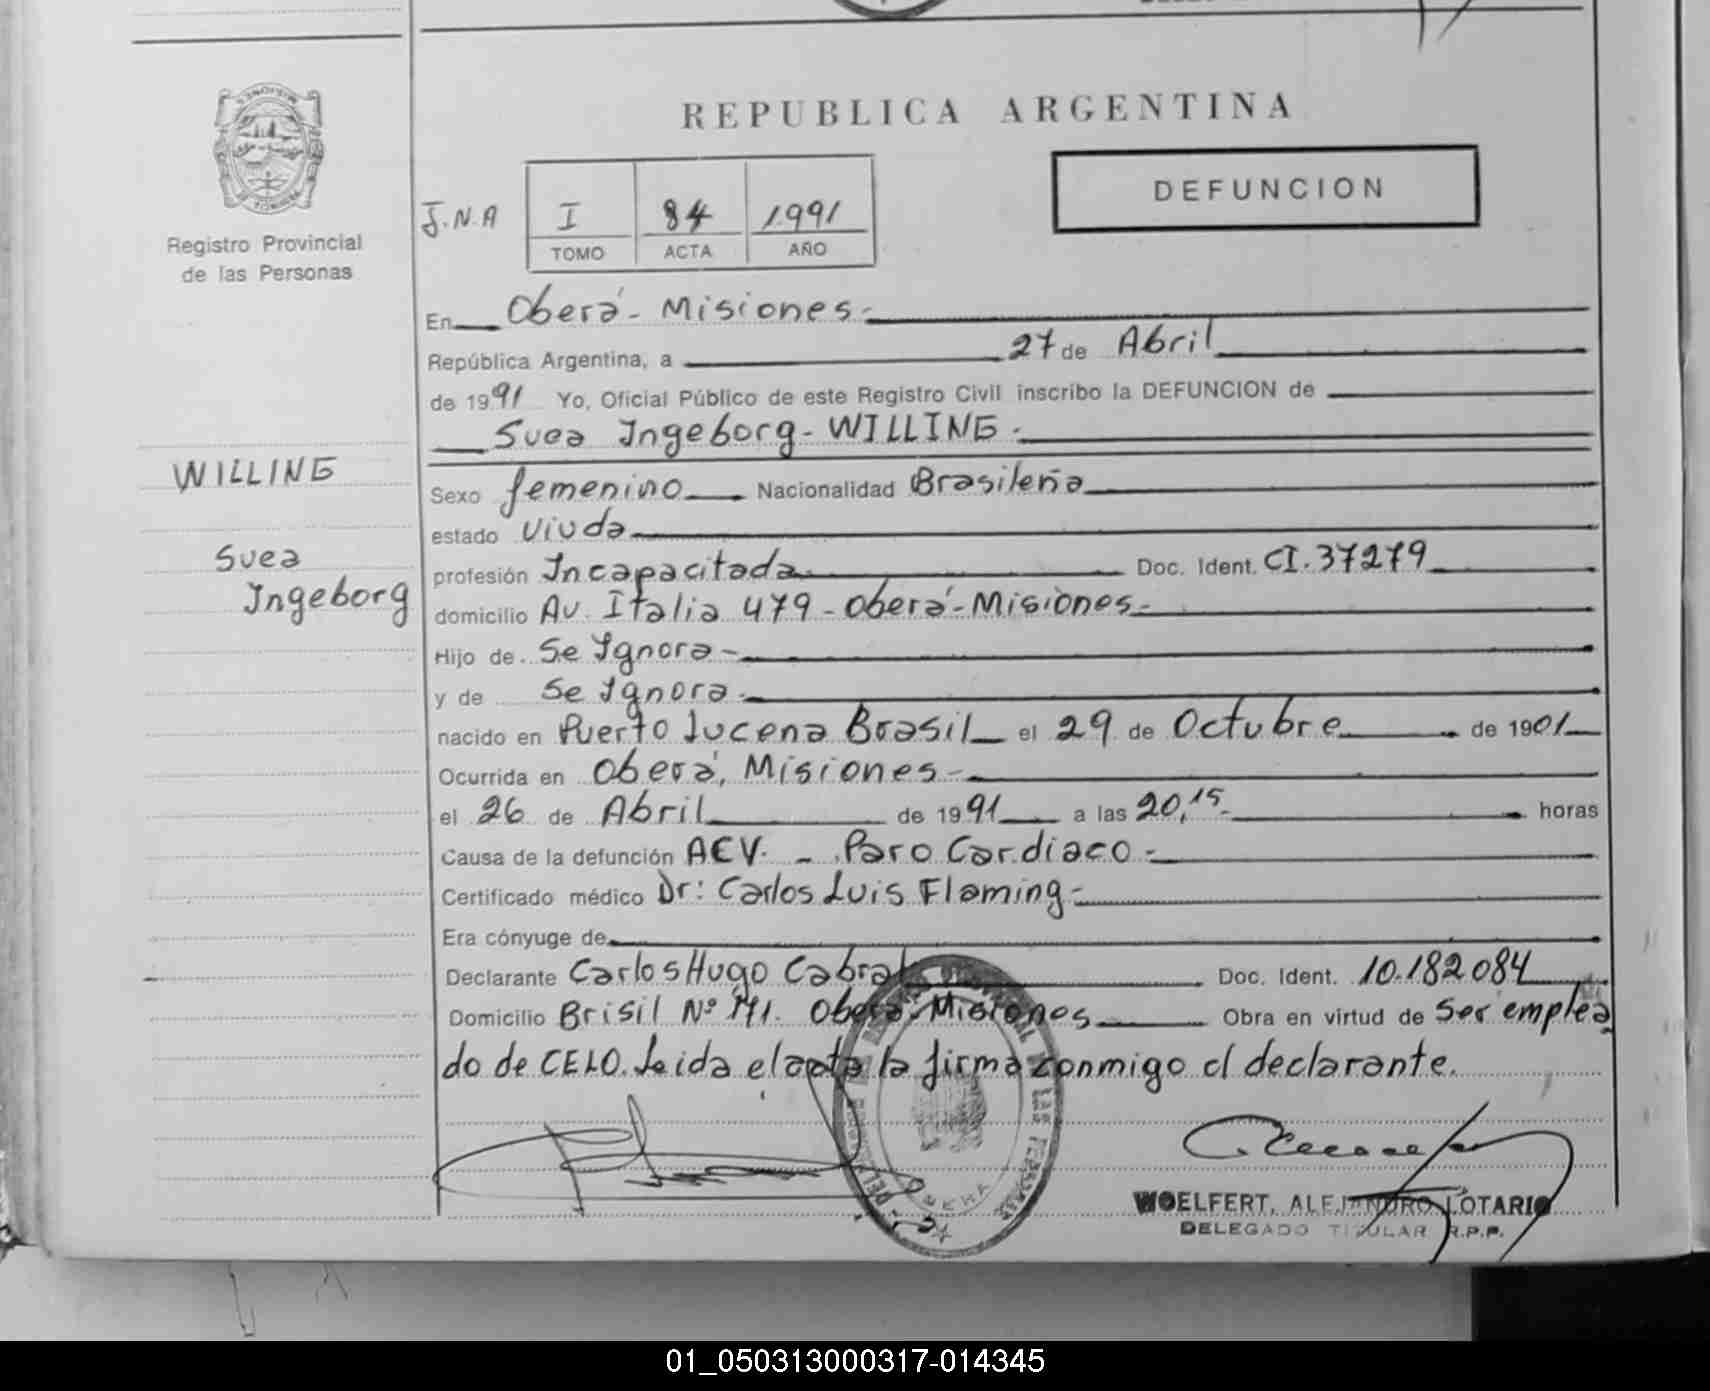 REPUBLICA ARGENTINA
Registro Provincial
de las Personas
J.N.A
I 84 1991
TOMO ACTA AÑO
DEFUNCION
En Oberá - Misiones.-
República Argentina, a 27 de Abril
de 1991 Yo, Oficial Público de este Registro Civil inscribo la DEFUNCION de
Suea Ingeborg - WILLING.-
WILLING
Suea
Ingeborg
Sexo femenino Nacionalidad Brasileña
estado Viuda
profesión Incapacitada Doc. Ident. CI. 37279
domicilio Av. Italia 479 - Oberá - Misiones.-
Hijo de Se Ignora -
y de Se Ignora.-
nacido en Puerto Lucena Brasil el 29 de Octubre de 1901
Ocurrida en Oberá, Misiones -
el 26 de Abril de 1991 a las 20,15- horas
Causa de la defunción ACV. - Paro Cardiaco -
Certificado médico Dr: Carlos Luis Flaming -
Era cónyuge de
Declarante Carlos Hugo Cabral Doc. Ident. 10.182084
Domicilio Brisil Nº 171. Oberá - Misiones Obra en virtud de Ser emplea
do de CELO. Leida el acta la firma conmigo el declarante.
WOELFERT, ALEJANDRO LOTARIO
DELEGADO TITULAR R.P.P.
01_050313000317-014345